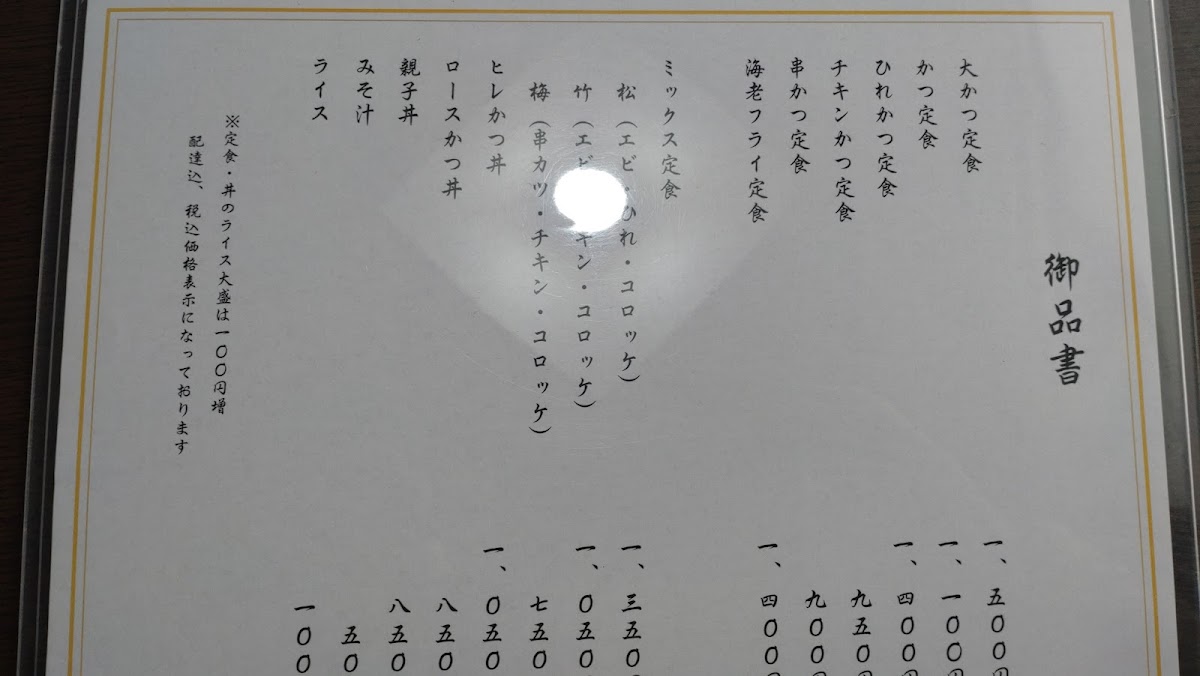 御品書
大かつ定食 一、五〇〇
かつ定食 一、一〇〇
ひれかつ定食 一、四〇〇
チキンかつ定食 九五〇
串かつ定食 九〇〇
海老フライ定食 一、四〇〇
ミックス定食
松（エビ・ひれ・コロッケ） 一、三五〇
竹（エビ キン・コロッケ） 一、〇五〇
梅（串カツ・チキン・コロッケ） 七五〇
ヒレかつ丼 一、〇五〇
ロースかつ丼 八五〇
親子丼 八五〇
みそ汁 五〇
ライス 一〇〇
※定食・丼のライス大盛は一〇〇円増
配達込、税込価格表示になっております